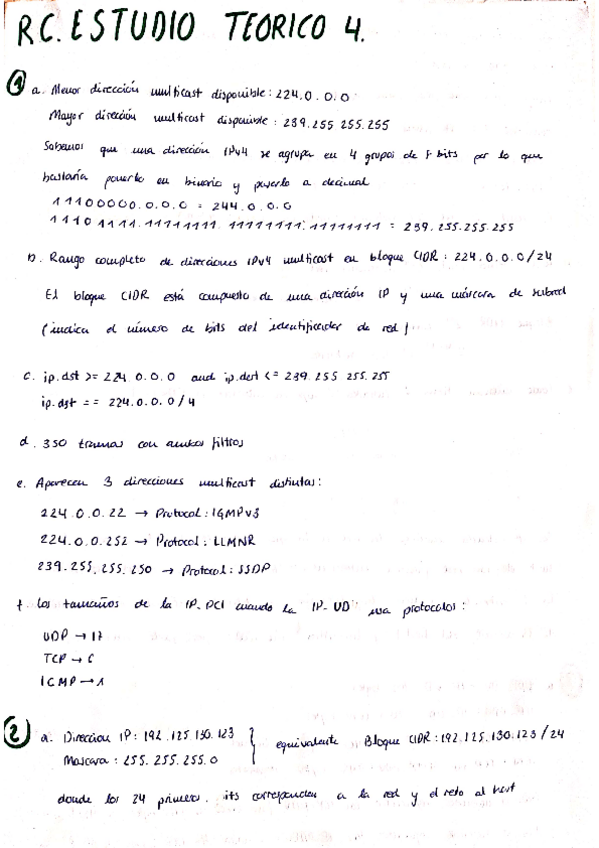 R.C. ESTUDIO TEORICO 4.
1 a. Menor dirección multicast disponible: 224.0.0.0
Mayor dirección multicast disponible: 239.255 255.255
Sabemos que una dirección IPv4 se agrupa en 4 grupos de 8 bits por lo que
bastaría ponerlo en binario y pasarlo a decimal
11100000.0.0.0 = 244.0.0.0
11101111.11111111.11111111.11111111 = 239.255.255.255
b. Rango completo de direcciones IPv4 multicast en bloque CIDR: 224.0.0.0/24
El bloque CIDR está compuesto de una dirección IP y una máscara de subred
(indica el número de bits del identificador de red)
c. ip.dst >= 224.0.0.0 and ip.dst <= 239.255 255.255
ip.dst == 224.0.0.0/4
d. 350 tramas con ambos filtros
e. Aparecen 3 direcciones multicast distintas:
224.0.0.22 → Protocol: IGMPv3
224.0.0.252 → Protocol: LLMNR
239.255.255.250 → Protocol: SSDP
f. Los tamaños de la IP-PCI cuando la IP-UD usa protocolos:
UDP → 17
TCP → 6
ICMP → 1
2 a. Dirección IP: 192.125.130.123
Mascara: 255.255.255.0
} equivalente Bloque CIDR: 192.125.130.123/24
donde los 24 primeros its corresponden a la red y el resto al host